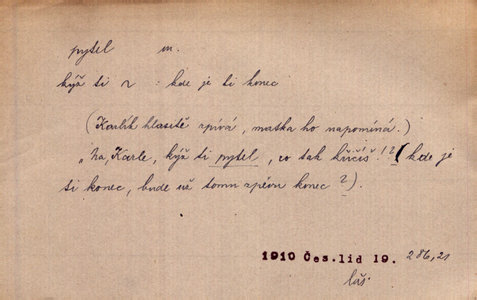 pytel m.
kýž ti ~ : kde je ti konec
(Karlík hlasitě zpívá, matka ho napomíná.)
„Na, Karle, kýž ti pytel, co tak křičíš!? (kde je
ti konec, bude už tomu zpěvu konec?).
1910 Čes. lid 19. 286,21
laš.